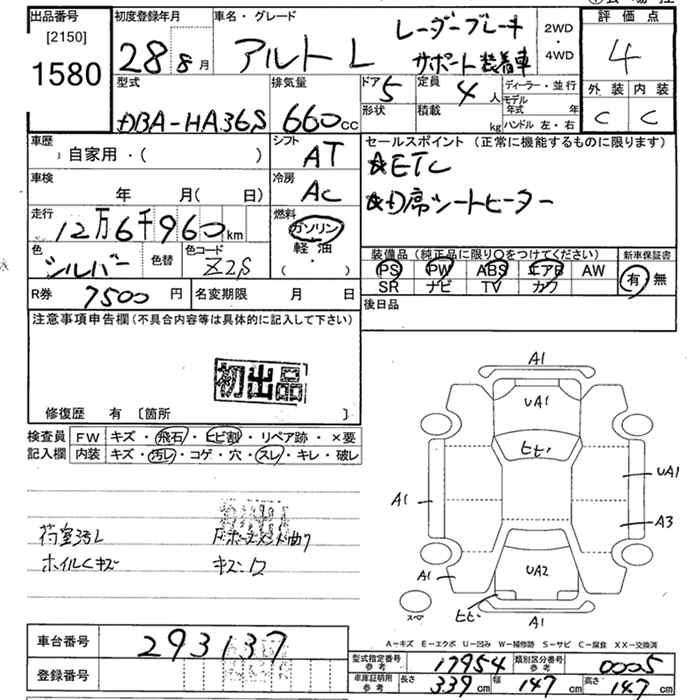 出品番号
[2150]
1580
初度登録年月
28年 8月
車名・グレード
アルト L
レーダーブレーキ
サポート装着車
2WD
・
4WD
評価点
4
外装 内装
C C
型式
DBA-HA36S
排気量
660cc
ドア 5
形状
定員 4人
積載 kg
ディーラー・並行
モデル年式 年
ハンドル 左・右
車歴
自家用・( )
シフト
AT
車検
年 月( 日)
冷房
AC
走行
12万6千960km
燃料
ガソリン
軽油
( ・ )
色
シルバー
色替
色コード
Z2S
R券 7500円
名変期限 月 日
セールスポイント (正常に機能するものに限ります)
☆ETC
☆D席シートヒーター
装備品(純正品に限り○をつけてください)
PS PW ABS エアB AW
SR ナビ TV カワ
新車保証書
有 無
後日品
注意事項申告欄(不具合内容等は具体的に記入して下さい)
初出品
修復歴 有 〔箇所 〕
検査員記入欄
FW キズ・飛石・ヒビ割・リペア跡・×要
内装 キズ・汚レ・コゲ・穴・スレ・キレ・破レ
荷室汚レ
ホイルCキズ
キズ・
A1
UA1
ヒビ
A1
UA1
A3
A1
UA2
ヒビ
A1
スペア
A-キズ E-エクボ U-凹み W-補修跡 S-サビ C-腐食 XX-交換済
車台番号 293137
登録番号
型式指定番号 参考 17954
類別区分番号 参考 0005
車庫証明用 参考 長さ 339cm 幅 147cm 高さ 147cm